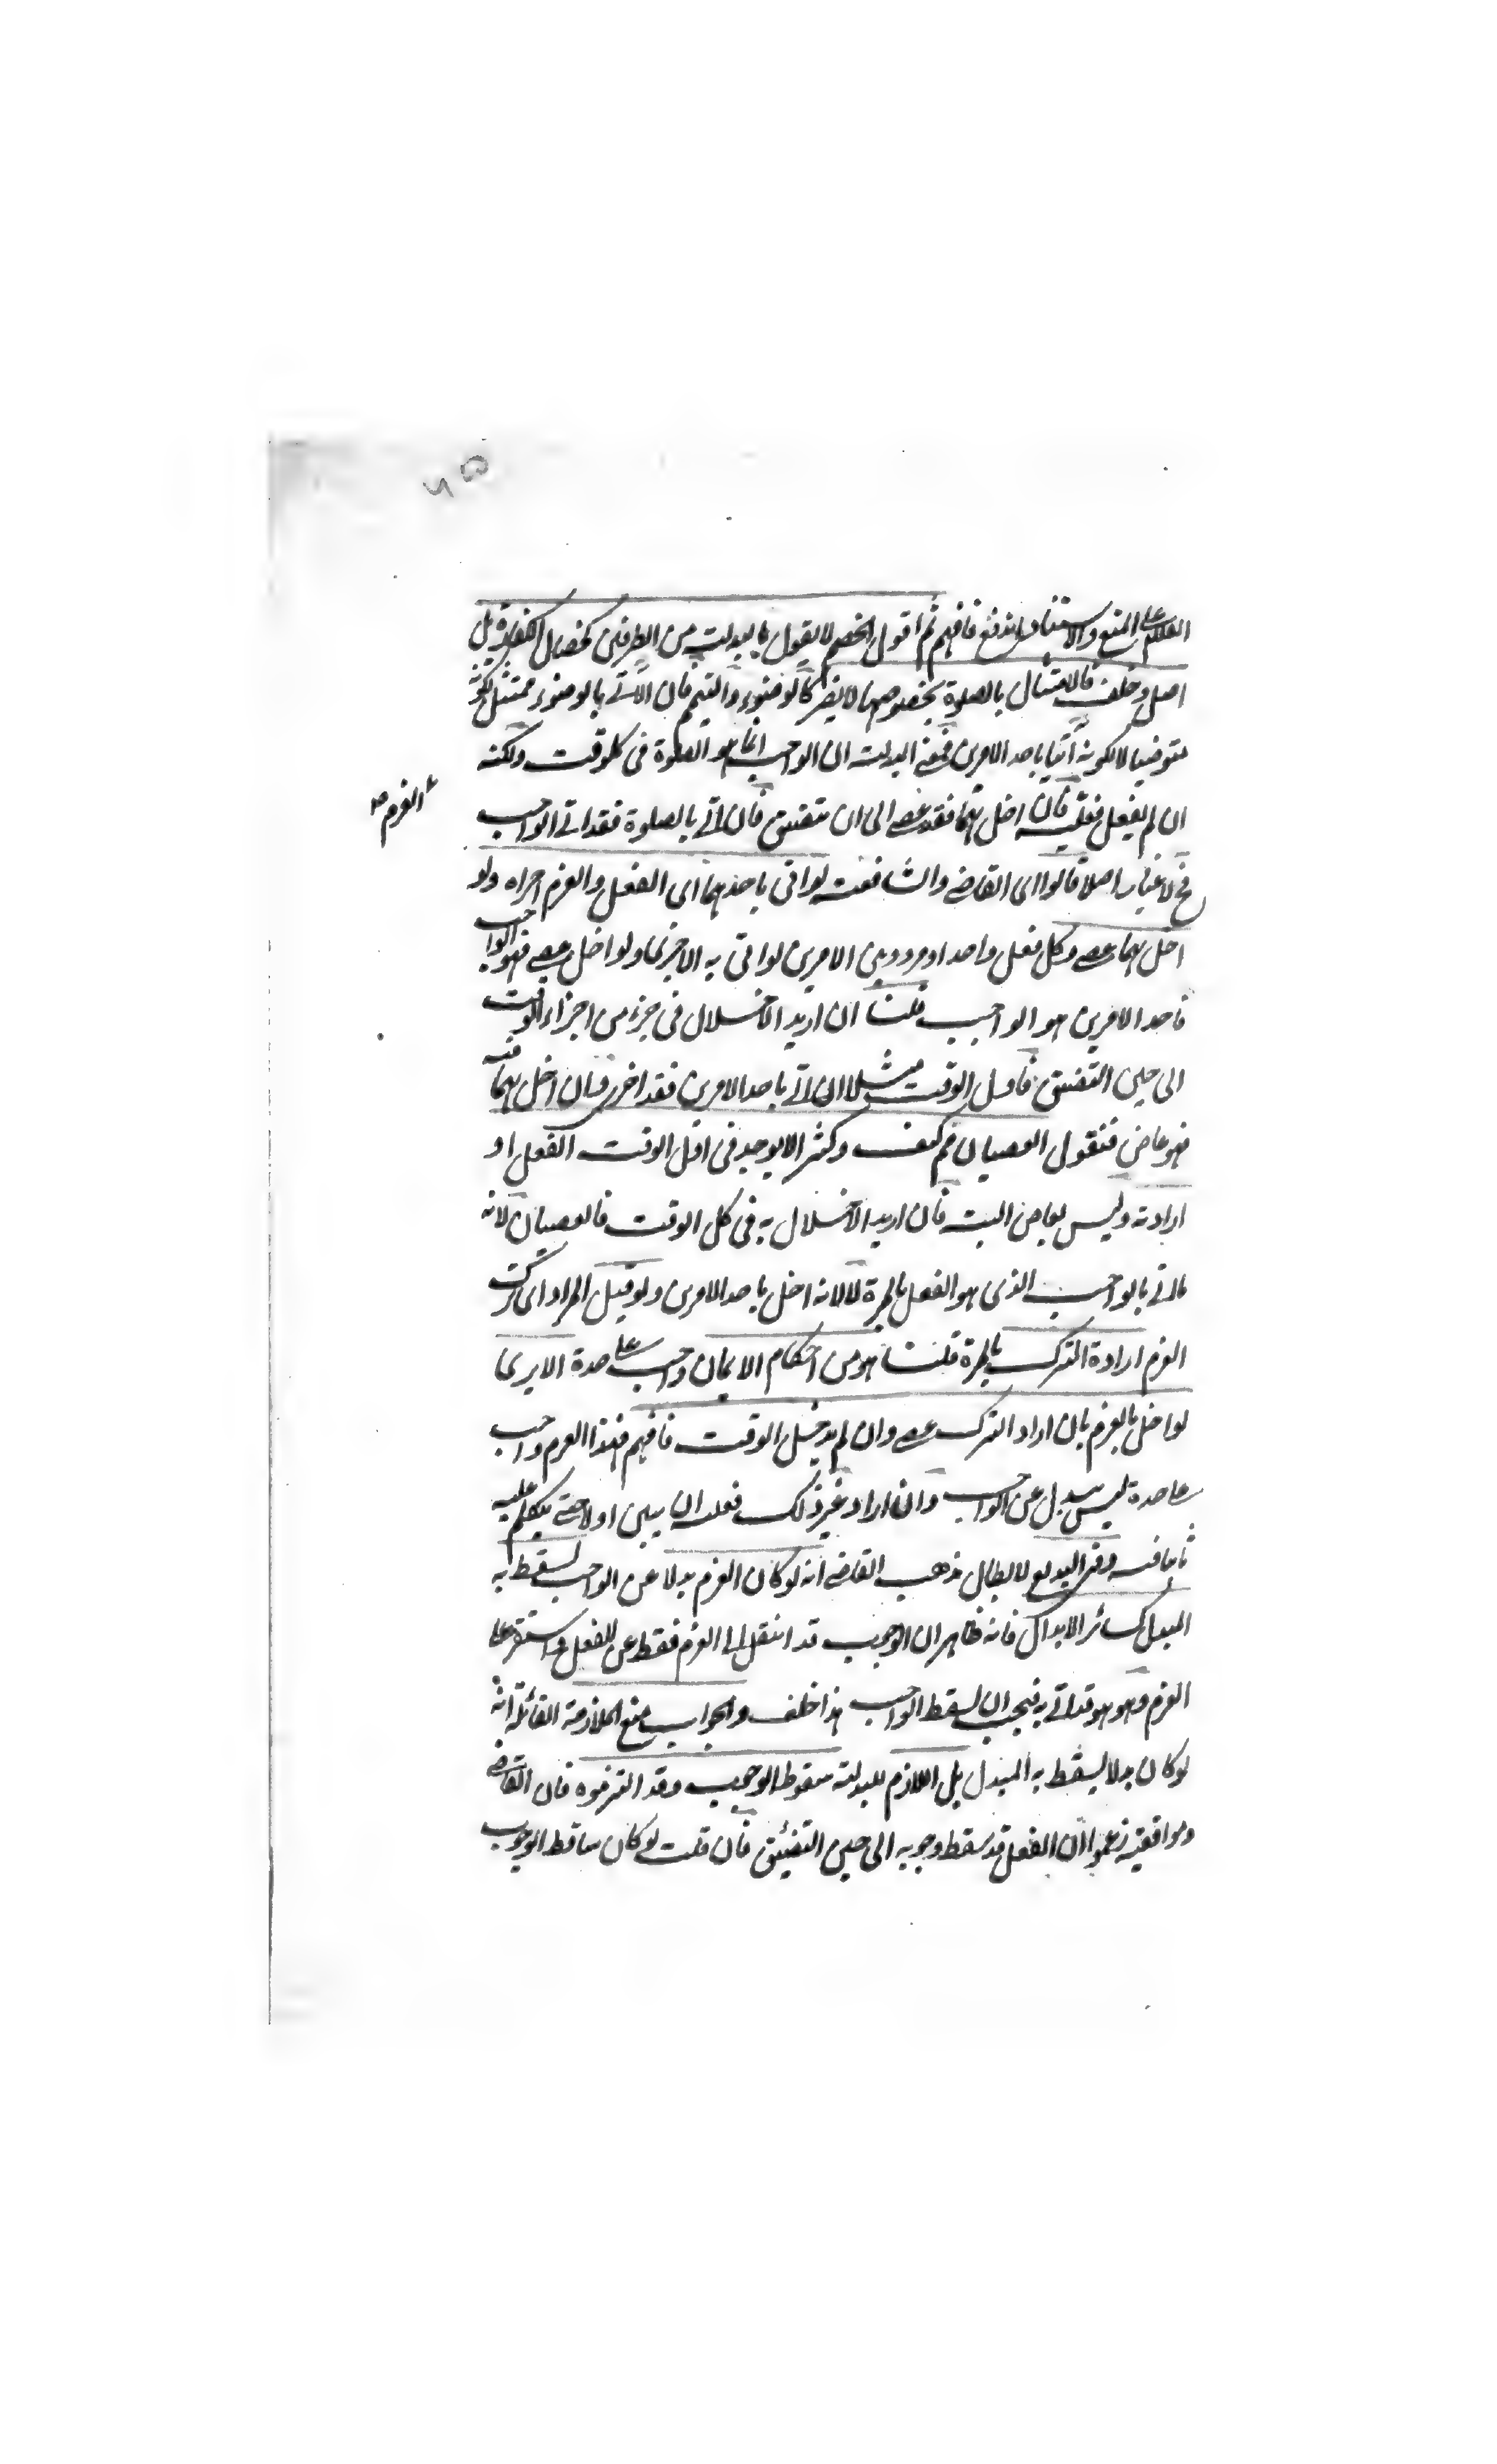 الكلام على المنع والاستناد يندفع فافهم ثم اقول الخصم لا يقول بالبدلية من الطرفين كخصال الكفارة بل
اصل وخلف فالامتثال بالصلوة بخصوصها لا يضر كالوضوء والتيمم فان الآتي بالوضوء ممتثل لكونه
متوضيا لا لكونه آتيا باحد الامرين فمعنى البدلية ان الواجب انما هو الصلوة في كل وقت ولكنه
ان لم يفعل فعليه فان اخل بهما فقد عصى الى ان يتضيق فان اتى بالصلوة فقد اتى الواجب
العزم صح
اصلا قالوا اى القاضي والشافعية لو اتى باحدهما اى الفعل والعزم اجزاه ولو
اخل بهما عصى وكل فعل واحد او مردد بين الامرين لو اتى به الاجزاء ولو اخل عصى فهو الواجب
فاحد الامرين هو الواجب قلنا ان اريد الاخلال في جزء من اجزاء الوقت
الى حين التضيق فاول الوقت مثلا ان اتى باحد الامرين فقد اجزى وان اخل بهما فيه
فهو عاص فنقول العصيان مم كيف وكثيرا لا يوجد في اول الوقت الفعل او
ارادته وليس بعاص البتة فان اريد الاخلال به في كل الوقت فالعصيان لانه
ما اتى بالواجب الذى هو الفعل بالمرة لا لانه اخل باحد الامرين ولو قيل المراد اى ترك
العزم ارادة الترك بالمرة قلنا هو من احكام الايمان واجب على حدة الا يرى
لو اخل بالعزم بان اراد الترك عصى وان لم يدخل الوقت فافهم فهذا العزم واجب
على حدة ليس ببدل عن الواجب وان اراد غير ذلك فعليه ان يبين اولا حتى يتكلم عليه
ثانيا فيه وفي البديع لابطال مذهب القاضي انه لو كان العزم بدلا عن الواجب لسقط به
المبدل كسائر الابدال فانه ظاهر ان الوجوب قد انتقل الى العزم فقط عن الفعل واستقر على
العزم وهو هو قد اتى به فيجب ان يسقط الواجب هذا خلف والجواب منع الملازمة القائلة انه
لو كان بدلا يسقط به المبدل بل اللازم للبدلية سقوط الوجوب وقد التزموه فان القاضي
وموافقيه زعموا ان الفعل قد سقط وجوبه الى حين التضيق فان قلت لو كان ساقط الوجوب